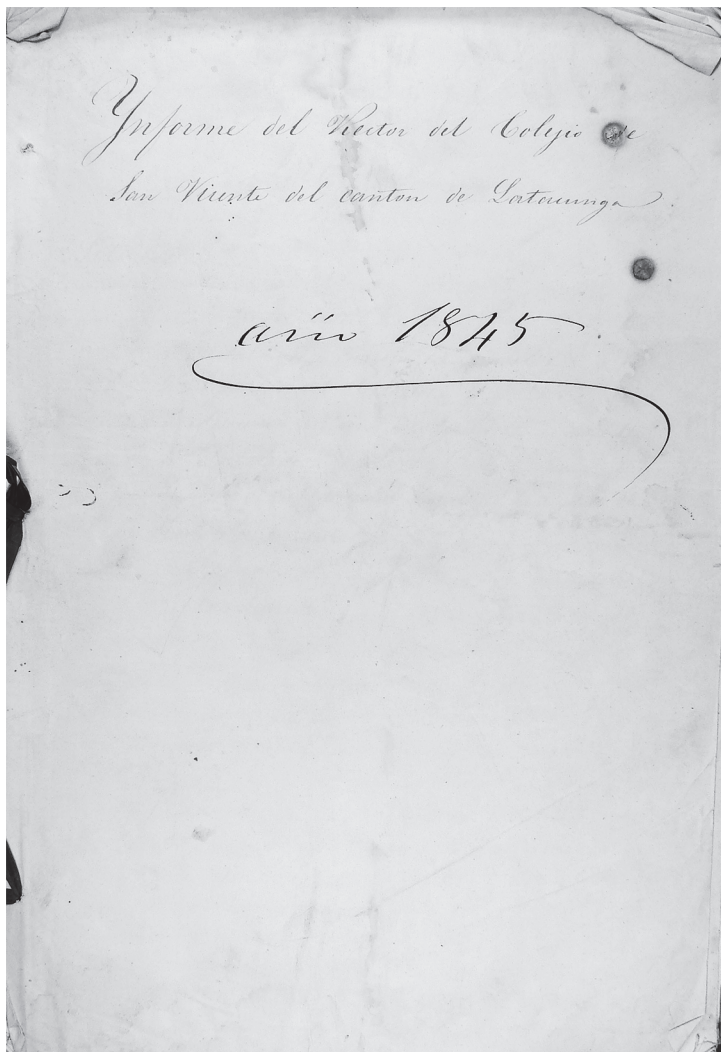 Ynforme del Rector del Colejio de
San Vicente del canton de Latacunga
año 1845